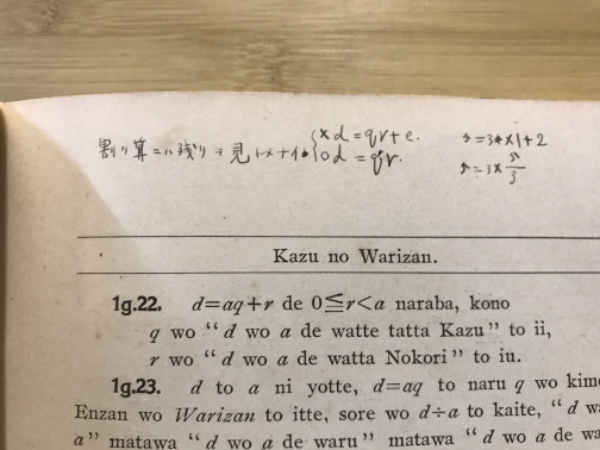 割り算ニハ残リヲ見
×d = qr + e.
○d = qr.
5 = 3×1+2
5 = 3×5/3
Kazu no Warizan.
1g.22. d=aq+r de 0≦r<a naraba, kono
q wo “d wo a de watte tatta Kazu” to ii,
r wo “d wo a de watta Nokori” to iu.
1g.23. d to a ni yotte, d=aq to naru q wo kime
Enzan wo Warizan to itte, sore wo d÷a to kaite, “d wa
a” matawa “d wo a de waru” matawa “d wo a de wa